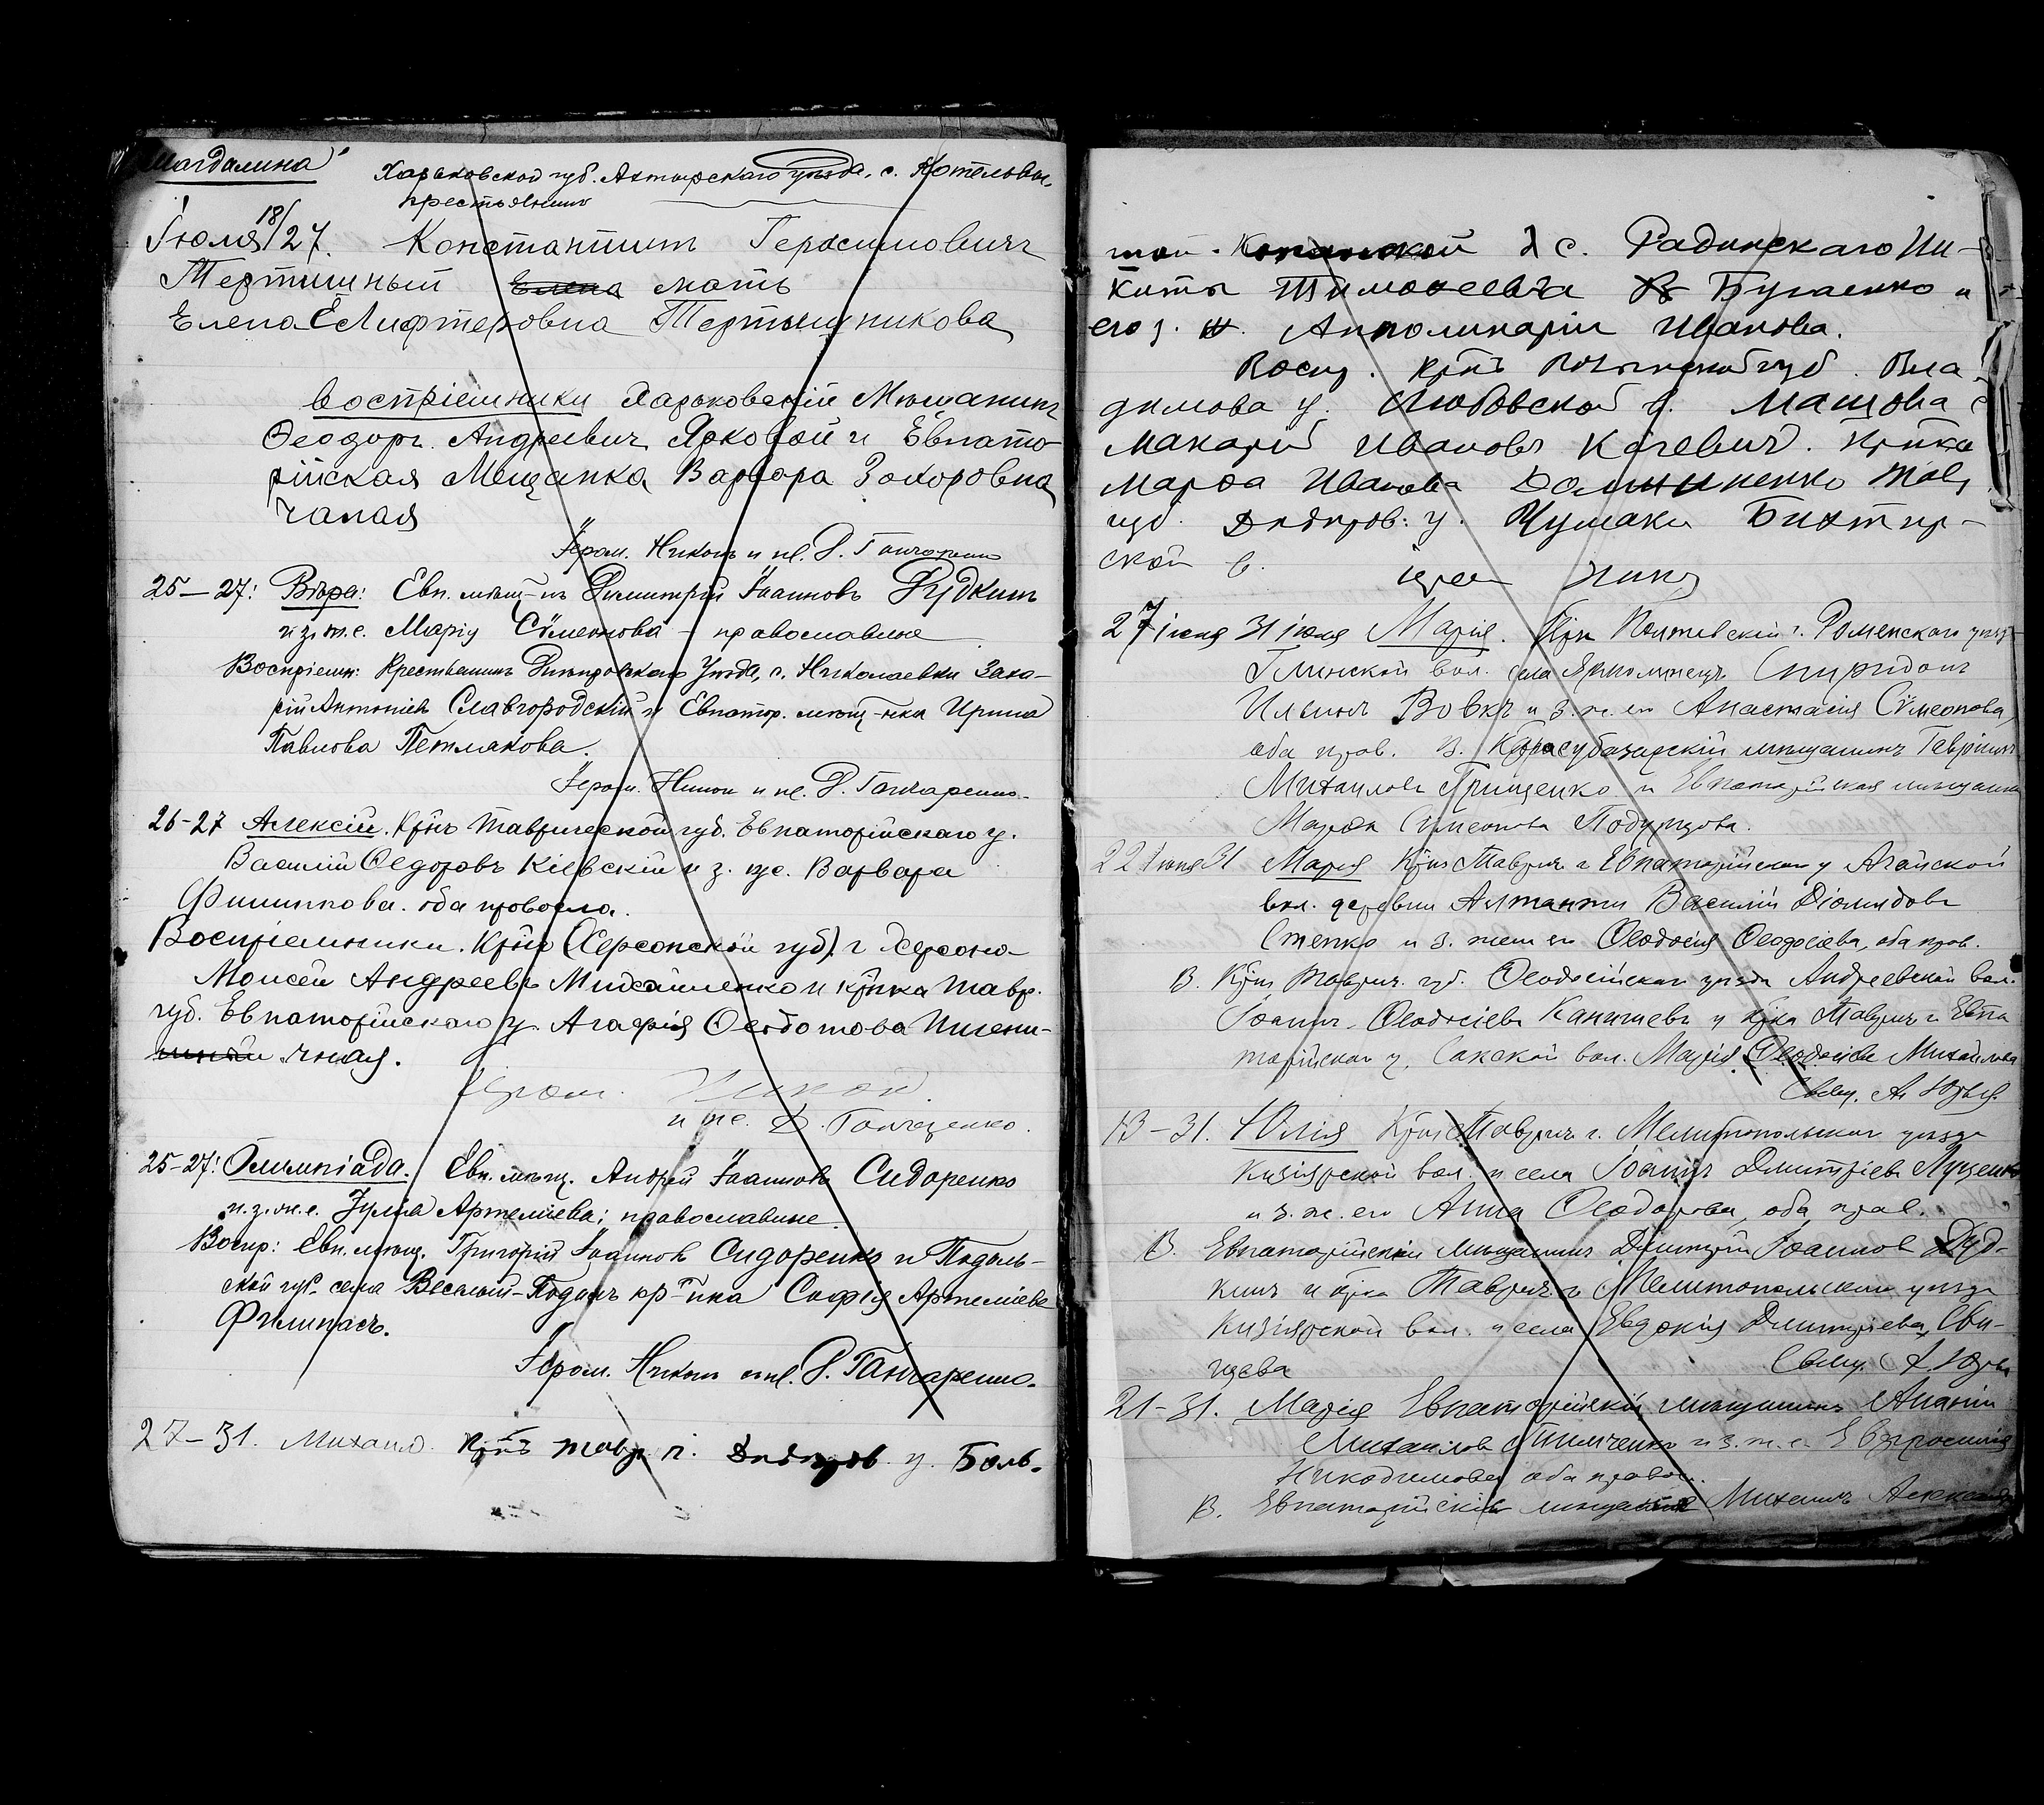 Магдалина"
Харьковской губ. Ахтырскаго уѣзда, с. Котельвы,
крестьянинъ
Іюля 18/27. Константинъ Герасимовичъ
Тертишный Елена мать
Елена Елифтеровна Тертышникова
Воспріемники Харьковскій Мѣщанинъ
Ѳеодоръ Андреевич Яковой и Евпато-
рійская Мещанка Варвара Захоровна
Чапая
Іером. Никонъ и пс. Д. Гончаренко
25–27: Вѣра: Евп. мѣщ-нъ Димитрій Іоанновъ Рудкинъ
и з. ж. е. Марія Сѵмеонова – православные
Воспріемн: Крестьянинъ Днѣпровскаго Уѣзда, с. Николаевки Заха-
рій Антоніев Славгородскій и Евпатор. мѣщ-нка Ирина
Павлова Петлякова.
Іером. Никон и пс. Д. Гончаренко.
26-27 Алексій. Кр͠нъ Таврической губ. Евпаторійскаго у.
Василій Ѳедоровъ Кіевскій и з. же. Варвара
Филиппова. оба правосла.
Воспріемники. Кр͠нъ (Херсонской губ). г Херсона
Моисей Андреевъ Михайленко и кр͠нка Тавр.
губ. Евпаторійскаго у. Агафія Ѳеодотова Пшени-
чная.
Іером. Никон.
и пс. Д. Гончаренко.
25-27: Олимпіада. Евп. мѣщ. Андрей Іоаннов Сидоренко
и. з. ж. е. Іулія Артеміева; православные.
Воспр: Евп. мѣщ. Григорій Іоаннов Сидоренко и Подоль-
ской губ. села Веселый-Подолъ кр-нка Софія Артеміева
Филипасъ.
Іером. Никонъ и пс. Д. Гончаренко.
27–31. Михаил. Кр͠нъ Тавр. г. Днѣпров. у. Боль-
шой. Копанской 2 с. Раденскаго Ни-
кита Тимоѳеевича Бугаенко и
его з. ж. Апполинарія Иванова.
Восп. кр͠нъ Волынской губ. Вла
димова у. Любовской в. Мацова с
Макарій Ивановъ Качевич. кр͠нка
Марѳа Иванова Даниненко Тав,
губ. Днѣпров: у. Чумаки Бехтер-
ской в. іером Никон
27 іюля 31 іюля Марія. Кр͠н Полтавскій г. Роменскаго уѣзд.
Глинской вол. села Ярмолинецъ Спиридонъ
Ильинъ Вовкъ и з. ж. его Анастасія Сѵмеонова,
оба прав. В. Карасубазарскій мѣщанинъ Гавріилъ
Михаиловъ Грищенко и Евпаторійская мѣщанка
Марѳа Симеонова Подурцова.
22 Іюня 31 Марія Кр͠нъ Таврич г Евпаторійскаго у Агайской
вол. деревни Алтанты Василій Діомидовъ
Стенко и з. жен его Ѳеодосія Ѳеодосіева, оба прав.
В. Кр͠нъ Таврич. губ. Ѳеодосійскаго уѣзда Андреевской вол.
Іоаннъ Ѳеодосіевъ Канишевъ и кр͠нка Таврич г Евпа
торійскаго у, Сакской вол. Марія Ѳеодосіева Михайлова
Свящ. А
13–31. Юлія Кр͠нъ Таврич г. Мелитопольскаго уѣзда
Кизіярской вол. и села Іоаннъ Дмитріевъ Луценко
и з. ж. его Анна Ѳеодорова, оба прав.
В. Евпаторійскій мѣщанинъ Димитрій Іоаннов Руд-
кинъ и кр͠нка Таврич г Мелитопольскаго уѣзда
Кизіярской вол. и села Евдокія Дмитріева Сви-
щева Свящ. А
21–31. Марія Евпаторійскій мѣщанинъ Ананій
Михаиловъ Тимченко и з. ж. е. Евфросинія
Никодимова оба правос.
В. Евпаторійскій мѣщанин Михаилъ